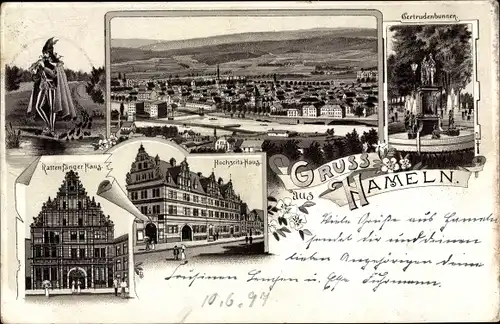 Gertrudenbunnen.
Rattenfänger Haus.
Hochzeits-Haus.
GRUSS
aus
HAMELN.
Viele Grüße aus Hameln
sendet dir und deinen
lieben Angehörigen deine
10.6.97